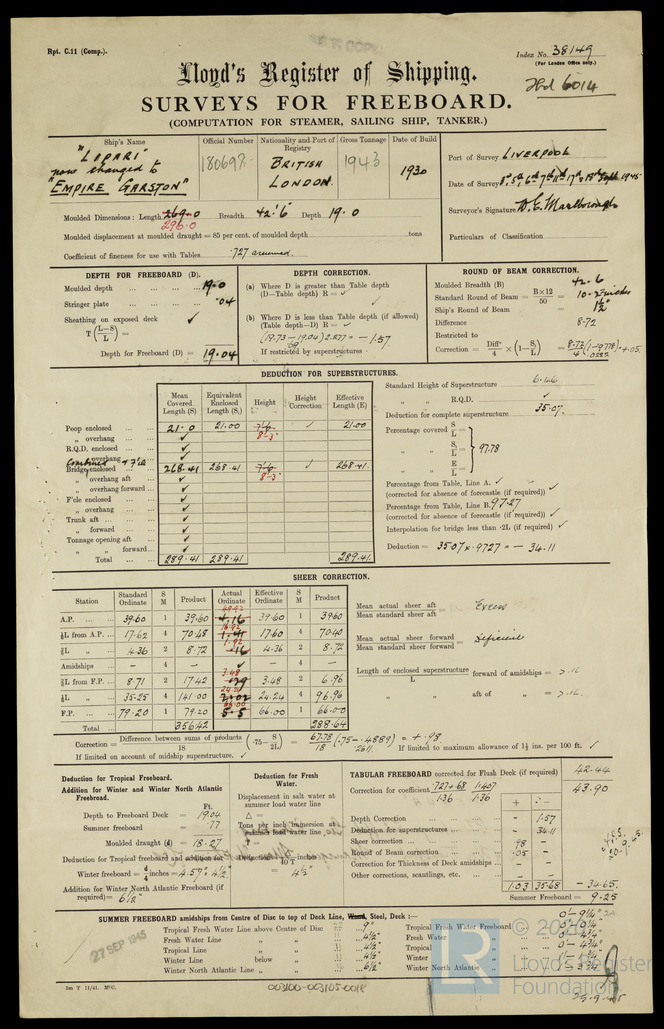 Rpt. C.11 (Comp.).
Index No. 38149
(For London Office only.)
Lloyd's Register of Shipping.
SURVEYS FOR FREEBOARD.
(COMPUTATION FOR STEAMER, SAILING SHIP, TANKER.)
Ship's Name
"LIPARI"
now changed to
"EMPIRE GARSTON"
Official Number
180698
Nationality and Port of Registry
BRITISH
LONDON.
Gross Tonnage
1943
Date of Build
1930
Port of Survey LIVERPOOL
Date of Survey
Surveyor's Signature
Particulars of Classification
Moulded Dimensions: Length 269.0 Breadth 42'6 Depth 19.0
296.0
Moulded displacement at moulded draught = 85 per cent. of moulded depth tons
Coefficient of fineness for use with Tables .727 assumed.
DEPTH FOR FREEBOARD (D).
Moulded depth 19.0
Stringer plate .04
Sheathing on exposed deck ✓
T (L–S/L) =
Depth for Freeboard (D) = 19.04
DEPTH CORRECTION.
(a) Where D is greater than Table depth
(D—Table depth) R = ✓
(b) Where D is less than Table depth (if allowed)
(Table depth—D) R = ✓
(19.73 – 19.04) 2.277 = – 1.57
If restricted by superstructures
ROUND OF BEAM CORRECTION.
Moulded Breadth (B) 42.6
Standard Round of Beam = B×12/50 = 10.2 inches
Ship's Round of Beam = 1½"
Difference 8.72
Restricted to
Correction = Diffce/4 × (1–S₁/L) = 8.72/4 (1–.9778) = +.05
.0222
DEDUCTION FOR SUPERSTRUCTURES.
Mean Covered Length (S)
Equivalent Enclosed Length (S₁)
Height
Height Correction
Effective Length (E)
Poop enclosed 21.0 21.00 7'6 ✓ 21.00
„ overhang ✓ 8'-3"
R.Q.D. enclosed ✓
„ overhang ✓
Combined + F'cle
Bridge enclosed 268.41 268.41 7'6 ✓ 268.41
„ overhang aft ✓ 8'-3"
„ overhang forward ✓
F'cle enclosed ✓
„ overhang ✓
Trunk aft ✓
„ forward ✓
Tonnage opening aft ✓
„ „ forward ✓
Total 289.41 289.41 289.41
Standard Height of Superstructure 6.46
„ „ R.Q.D. ✓
Deduction for complete superstructure 35.07
Percentage covered S/L =
„ „ S₁/L = 97.78
„ „ E/L =
Percentage from Table, Line A. ✓
(corrected for absence of forecastle (if required)) ✓
Percentage from Table, Line B. 97.27
(corrected for absence of forecastle (if required)) ✓
Interpolation for bridge less than ·2L (if required) ✓
Deduction = 35.07 × .9727 = – 34.11
SHEER CORRECTION.
Station Standard Ordinate S M Product Actual Ordinate Effective Ordinate S M Product
A.P. 39.60 1 39.60 4.16 39.60 1 39.60
⅙L from A.P. 17.62 4 70.48 1.41 17.60 4 70.40
⅓L „ 4.36 2 8.72 .16 4.36 2 8.72
Amidships – 4 – ✓ – 4 –
⅓L from F.P. 8.71 2 17.42 3.48 3.48 2 6.96
⅙L „ 35.25 4 141.00 2.02 24.24 4 96.96
F.P. 79.20 1 79.20 5.5 66.00 1 66.00
Total 356.42 288.64
Mean actual sheer aft / Mean standard sheer aft = Excess
Mean actual sheer forward / Mean standard sheer forward = Deficient
Length of enclosed superstructure/L forward of amidships = >.1L
„ „ aft of „ = >.1L.
Correction = Difference between sums of products/18 (·75–S/2L) = 67.78/18 (.75–.4889) = +.98
.2611
If limited on account of midship superstructure. ✓
If limited to maximum allowance of 1½ ins. per 100 ft. ✓
Deduction for Tropical Freeboard.
Addition for Winter and Winter North Atlantic Freeboard.
Ft.
Depth to Freeboard = 19.04
Summer freeboard = .77
Moulded draught (d) = 18.27
Deduction for Tropical freeboard and addition for
Winter freeboard = d/4 inches = 4.57" 4½"
Addition for Winter North Atlantic Freeboard (if required) = 6½"
Deduction for Fresh Water.
Displacement in salt water at summer load water line
Δ =
Tons per inch immersion at summer load water line
T =
Deduction = Δ/40 T inches
= 4½"
TABULAR FREEBOARD corrected for Flush Deck (if required) 42.44
Correction for coefficient .727+.68/1.36 1.407/1.36 43.90
+ –
Depth Correction – 1.57
Deduction for superstructures – 34.11
Sheer correction .98 –
Round of Beam correction .05 –
Correction for Thickness of Deck amidships – –
Other corrections, scantlings, etc. – –
1.03 35.68 – 34.65
Summer Freeboard = 9.25
SUMMER FREEBOARD amidships from Centre of Disc to top of Deck Line, Wood, Steel, Deck :— 0'–9¼"
Tropical Fresh Water Line above Centre of Disc 9"
Fresh Water Line „ „ 4½"
Tropical Line „ „ 4½"
Winter Line below „ 4½"
Winter North Atlantic Line „ „ 6½"
Tropical Fresh Water Freeboard 0'–0¼"
Fresh Water „ 0'–4¾"
Tropical „ 0'–4¾"
Winter „
Winter North Atlantic „
27 SEP 1945
1m T 11/41. McC.
003100-003105-0018
© 2020
LR
Lloyd's Register
Foundation